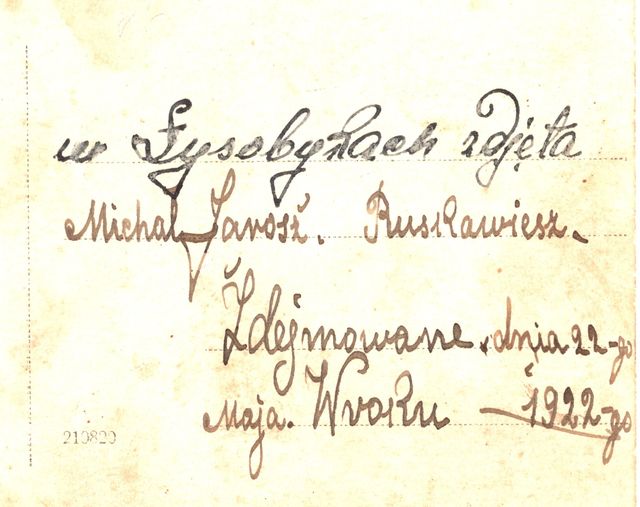 w Łysobykach zdjęta
Michal Jarosz. Ruskawiesz.
Żdejmowane. dnia 22-go
Maja. Wroku – 1922-go
210820